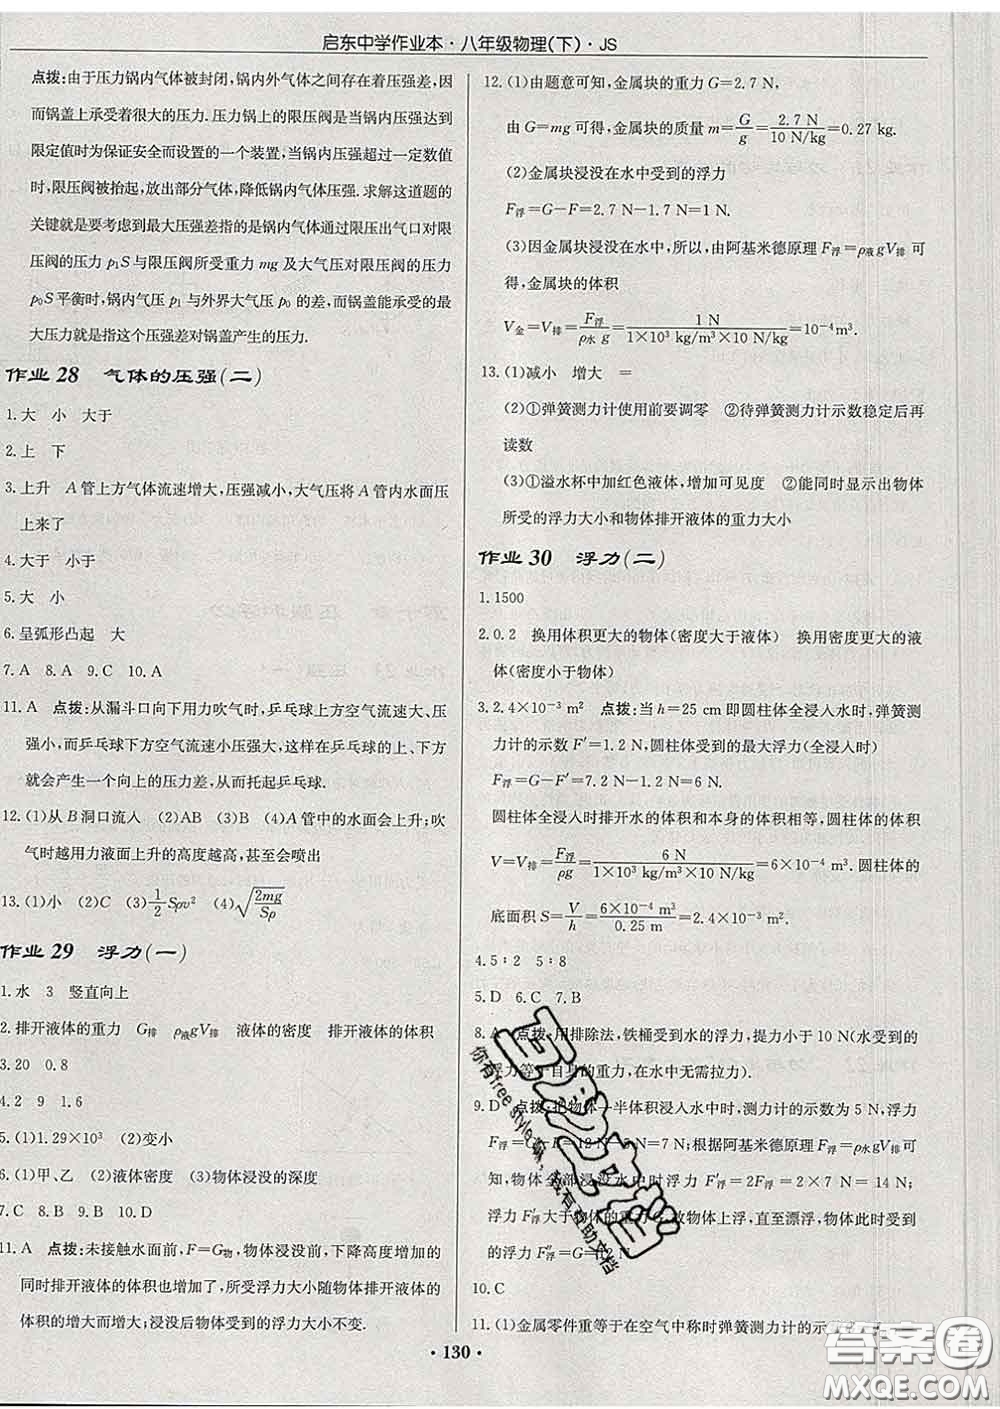 启东中学作业本·八年级物理(下)·JS
点拨:由于压力锅内气体被封闭,锅内外气体之间存在着压强差,因
而锅盖上承受着很大的压力.压力锅上的限压阀是当锅内压强达到
限定值时为保证安全而设置的一个装置,当锅内压强超过一定数值
时,限压阀被抬起,放出部分气体,降低锅内气体压强.求解这道题的
关键就是要考虑到最大压强差指的是锅内气体通过限压出气口对限
压阀的压力 p₁S 与限压阀所受重力 mg 及大气压对限压阀的压力
p₀S 平衡时,锅内气压 p₁ 与外界大气压 p₀ 的差,而锅盖能承受的最
大压力就是指这个压强差对锅盖产生的压力.
作业 28 气体的压强(二)
1.大 小 大于
2.上 下
3.上升 A 管上方气体流速增大,压强减小,大气压将 A 管内水面压
上来了
4.大于 小于
5.大 小
6.呈弧形凸起 大
7.A 8.A 9.C 10.A
11.A 点拨:从漏斗口向下用力吹气时,乒乓球上方空气流速大、压
强小,而乒乓球下方空气流速小压强大,这样在乒乓球的上、下方
就会产生一个向上的压力差,从而托起乒乓球.
12.(1)从 B 洞口流入 (2)AB (3)小 (4)A 管中的水面会上升;吹
气时越用力液面上升的高度越高,甚至会喷出
13.(1)小 (2)C (3)1/2 Sρv² (4)√(2mg/Sρ)
作业 29 浮力(一)
1.水 3 竖直向上
2.排开液体的重力 G排 ρ液gV排 液体的密度 排开液体的体积
3.20 0.8
4.2 9 1.6
5.(1)1.29×10³ (2)变小
6.(1)甲、乙 (2)液体密度 (3)物体浸没的深度
7.C 8.B 9.B 10.D
11.A 点拨:未接触水面前,F=G物,物体浸没前,下降高度增加的
同时排开液体的体积也增加了,所受浮力大小随物体排开液体的
体积的增大而增大;浸没后物体受到的浮力大小不变.
12.(1)由题意可知,金属块的重力 G=2.7 N,
由 G=mg 可得,金属块的质量 m=G/g=2.7 N/10 N/kg=0.27 kg.
(2)金属块浸没在水中受到的浮力
F浮=G-F=2.7 N-1.7 N=1 N.
(3)因金属块浸没在水中,所以,由阿基米德原理 F浮=ρ液gV排 可
得,金属块的体积
V金=V排=F浮/ρ水 g=1 N/1×10³ kg/m³×10 N/kg=10⁻⁴m³.
13.(1)减小 增大 =
(2)①弹簧测力计使用前要调零 ②待弹簧测力计示数稳定后再
读数
(3)①溢水杯中加红色液体,增加可见度 ②能同时显示出物体
所受的浮力大小和物体排开液体的重力大小
作业 30 浮力(二)
1.1500
2.0.2 换用体积更大的物体(密度大于液体) 换用密度更大的液
体(密度小于物体)
3.2.4×10⁻³ m² 点拨:当 h=25 cm 即圆柱体全浸入水时,弹簧测
力计的示数 F′=1.2 N,圆柱体受到的最大浮力(全浸入时)
F浮=G-F′=7.2 N-1.2 N=6 N.
圆柱体全浸入时排开水的体积和本身的体积相等,圆柱体的体积
V=V排=F浮/ρg=6 N/1×10³ kg/m³×10 N/kg=6×10⁻⁴ m³.圆柱体的
底面积 S=V/h=6×10⁻⁴ m³/0.25 m=2.4×10⁻³m².
4.5∶2 5∶8
5.D 6.C 7.B
8.A 点拨:用排除法,铁桶受到水的浮力,提力小于 10 N(水受到的
浮力等于自身的重力,在水中无需拉力).
9.D 点拨:把物体一半体积浸入水中时,测力计的示数为 5 N,浮力
F浮=G-F=12 N-5 N=7 N;根据阿基米德原理 F浮=ρ水gV排 可
知,物体全部浸没水中时浮力 F′浮=2F浮=2×7 N=14 N,
浮力 F′浮大于物体的重力 G,故物体上浮,直至漂浮,物体此时受到
的浮力 F″浮=G=12 N
10.C
11.(1)金属零件重等于在空气中称时弹簧测力计的示
·130·
百分文档
你有free style嘛,我有互助文档
答案圈
MXQE.COM